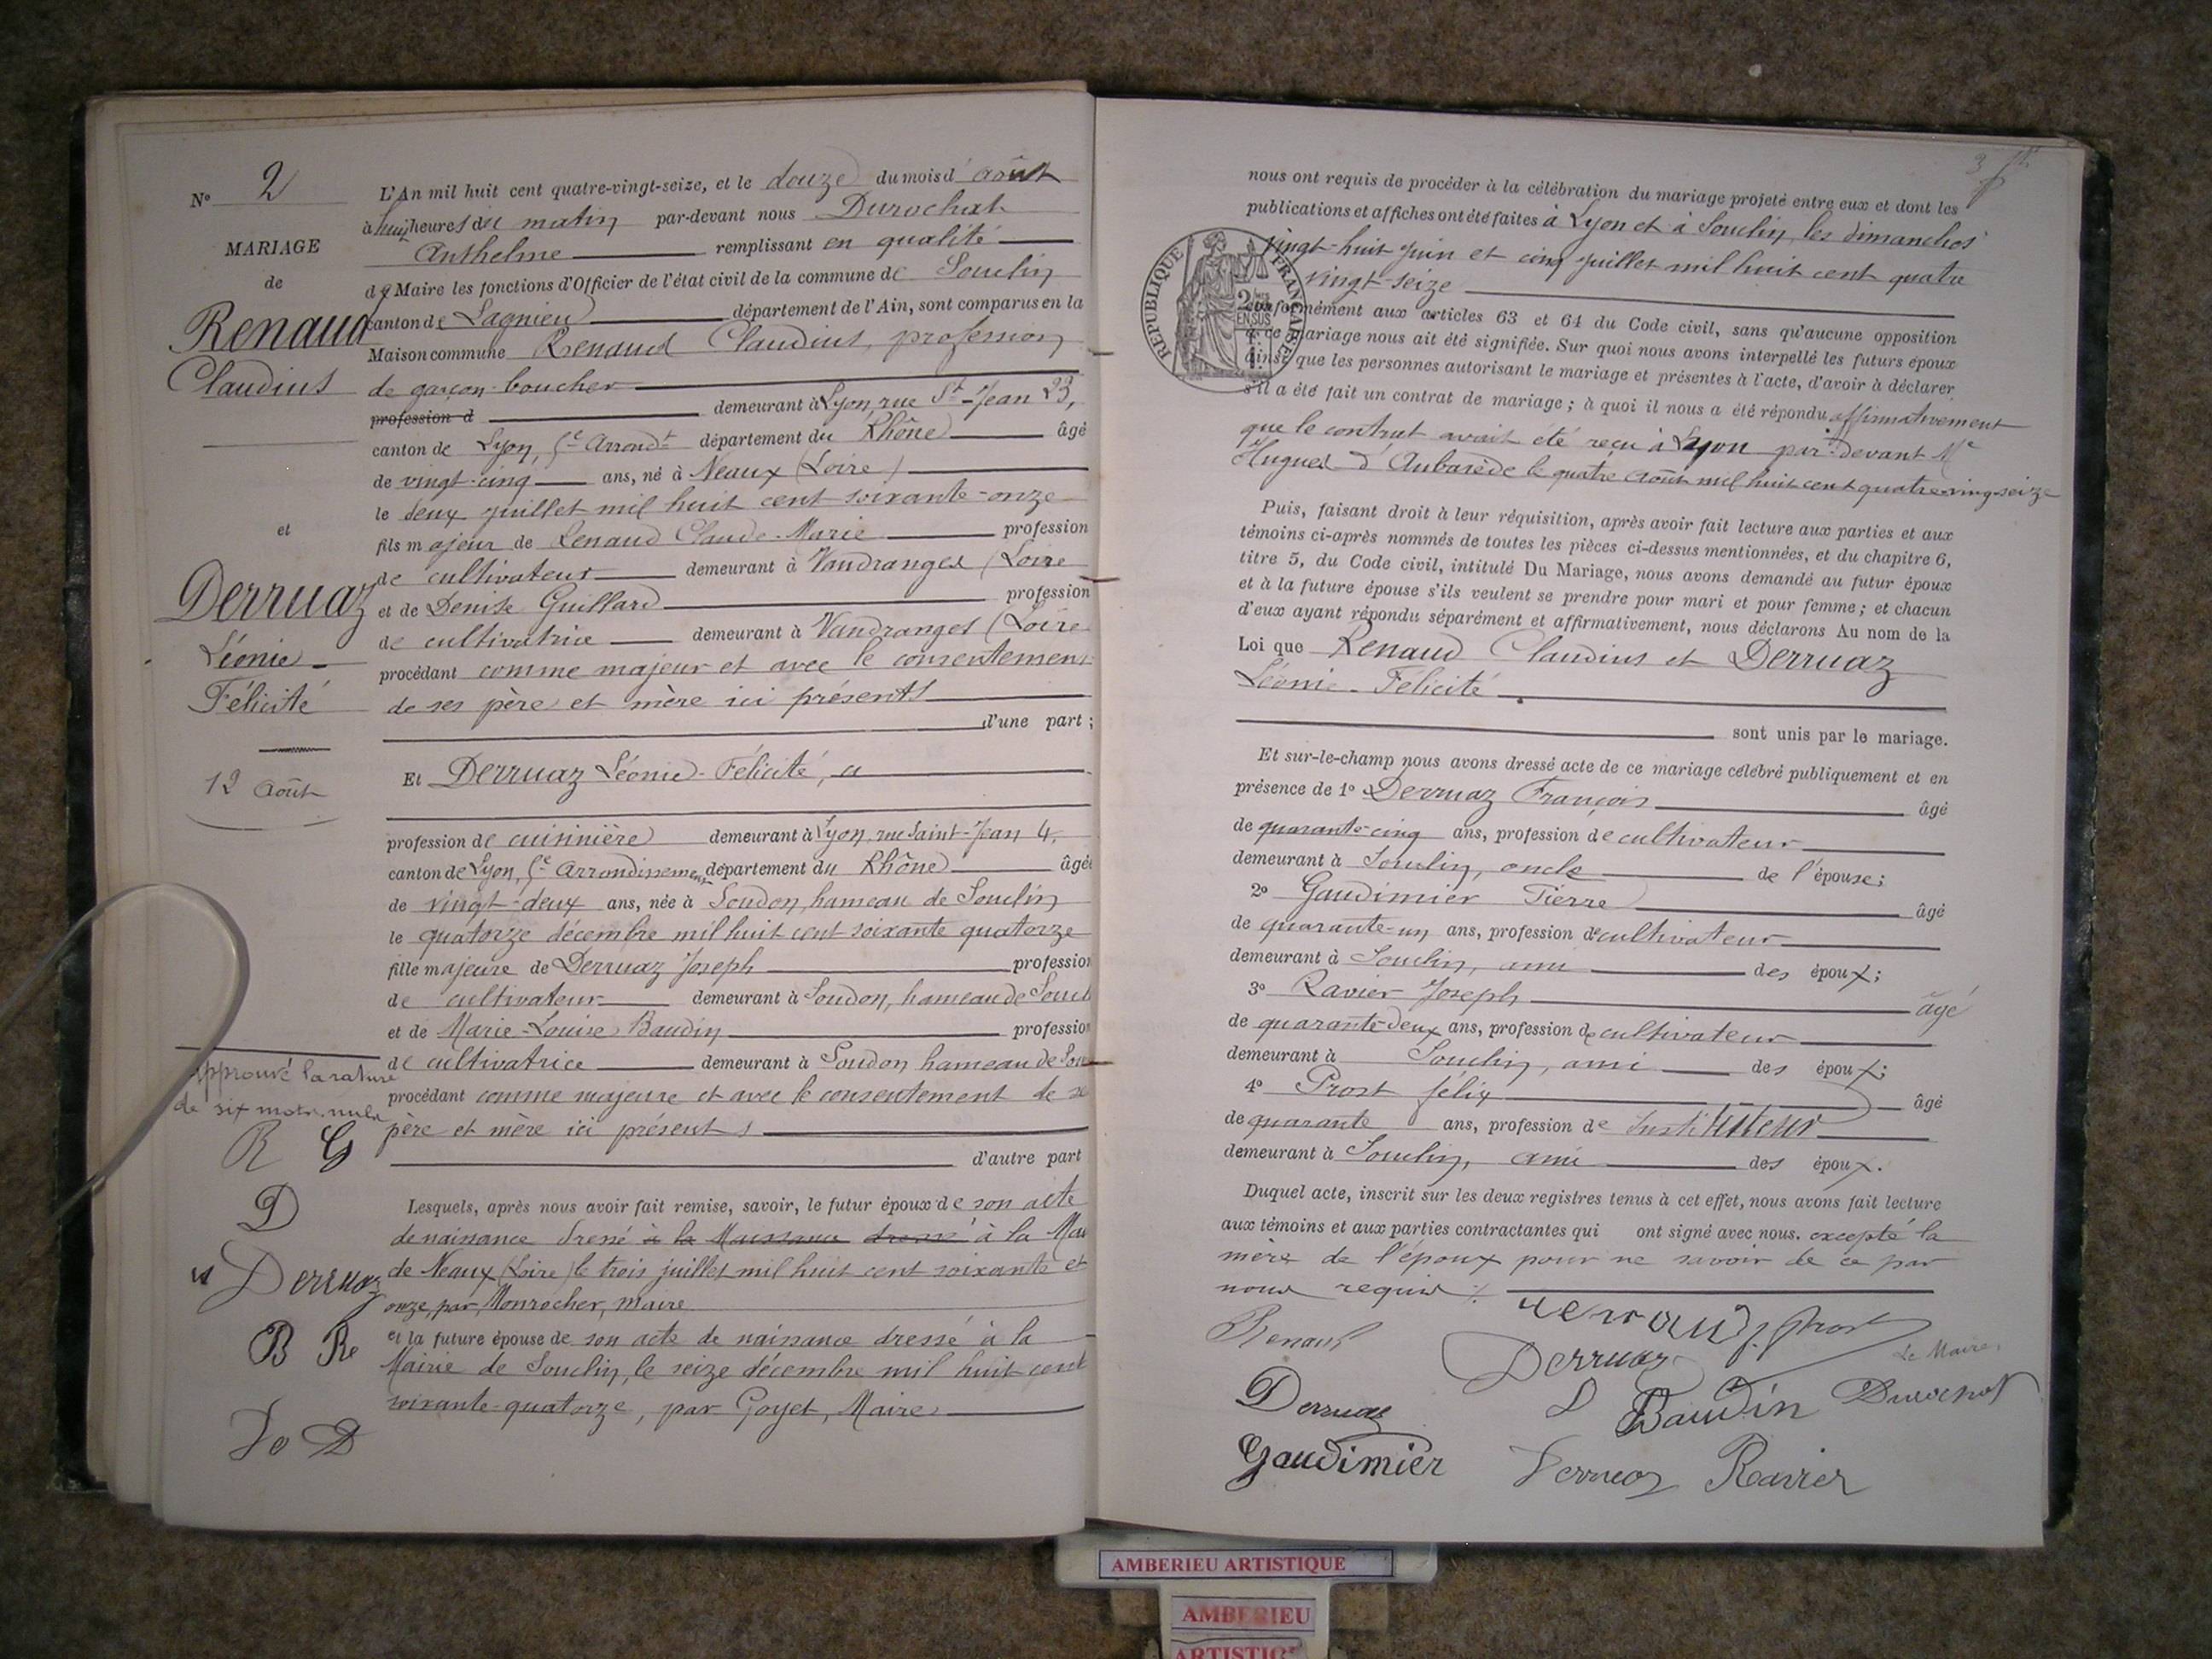 N° 2
MARIAGE
de
Renaud
Claudius
et
Derruaz
Léonie-
Félicité
12 août
approuvé la rature
de six mots nuls
R G
D
Derruaz
B Re
D
L'An mil huit cent quatre-vingt-seize, et le douze du mois d'août
à huit heures du matin par-devant nous Durochat
Anthelme remplissant en qualité
de Maire les fonctions d'Officier de l'état civil de la commune de Souclin
canton de Lagnieu département de l'Ain, sont comparus en la
Maison commune Renaud Claudius, profession
de garçon-boucher
profession d demeurant à Lyon, rue St-Jean 23,
canton de Lyon, 5e Arrondt département du Rhône âgé
de vingt-cinq ans, né à Neaux (Loire)
le deux juillet mil huit cent soixante-onze
fils majeur de Renaud Claude-Marie profession
de cultivateur demeurant à Vendranges (Loire
et de Denise Guillard profession
de cultivatrice demeurant à Vendranges (Loire
procédant comme majeur et avec le consentement
de ses père et mère ici présents
d'une part ;
Et Derruaz Léonie-Félicité,
profession de cuisinière demeurant à Lyon, rue Saint-Jean 4,
canton de Lyon, 5e Arrondissement département du Rhône âgée
de vingt-deux ans, née à Soudon, hameau de Souclin
le quatorze décembre mil huit cent soixante quatorze
fille majeure de Derruaz Joseph profession
de cultivateur demeurant à Soudon, hameau de Soucl
et de Marie-Louise Baudin profession
de cultivatrice demeurant à Soudon hameau de Sou
procédant comme majeure et avec le consentement de se
père et mère ici présents
d'autre part
Lesquels, après nous avoir fait remise, savoir, le futur époux de son acte
de naissance dressé à la Naissance dressé à la Mai
de Neaux (Loire) le trois juillet mil huit cent soixante et
onze, par Monrocher, maire
et la future épouse de son acte de naissance dressé à la
Mairie de Souclin, le seize décembre mil huit cent
soixante-quatorze, par Goyet, Maire
3
nous ont requis de procéder à la célébration du mariage projeté entre eux et dont les
publications et affiches ont été faites à Lyon et à Souclin, les dimanches
vingt-huit juin et cinq juillet mil huit cent quatre
vingt-seize
RÉPUBLIQUE FRANÇAISE
2 10mes
EN SUS
conformément aux articles 63 et 64 du Code civil, sans qu'aucune opposition
à ce mariage nous ait été signifiée. Sur quoi nous avons interpellé les futurs époux
ainsi que les personnes autorisant le mariage et présentes à l'acte, d'avoir à déclarer
s'il a été fait un contrat de mariage ; à quoi il nous a été répondu affirmativement
que le contrat avait été reçu à Lyon par-devant Me
Hugues d'Aubarède le quatre août mil huit cent quatre-ving-seize
Puis, faisant droit à leur réquisition, après avoir fait lecture aux parties et aux
témoins ci-après nommés de toutes les pièces ci-dessus mentionnées, et du chapitre 6,
titre 5, du Code civil, intitulé Du Mariage, nous avons demandé au futur époux
et à la future épouse s'ils veulent se prendre pour mari et pour femme ; et chacun
d'eux ayant répondu séparément et affirmativement, nous déclarons Au nom de la
Loi que Renaud Claudius et Derruaz
Léonie-Félicité
sont unis par le mariage.
Et sur-le-champ nous avons dressé acte de ce mariage célébré publiquement et en
présence de 1° Derruaz François âgé
de quarante-cinq ans, profession de cultivateur
demeurant à Souclin, oncle de l'épouse ;
2° Gaudimier Pierre âgé
de quarante-un ans, profession de cultivateur
demeurant à Souclin, ami des époux ;
3° Ravier Joseph âgé
de quarante-deux ans, profession de cultivateur
demeurant à Souclin, ami des époux ;
4° Prost félix âgé
de quarante ans, profession de Instituteur
demeurant à Souclin, ami des époux.
Duquel acte, inscrit sur les deux registres tenus à cet effet, nous avons fait lecture
aux témoins et aux parties contractantes qui ont signé avec nous. excepté la
mère de l'époux pour ne savoir de ce par
nous requise ./.
Renaud renaud f. Prost
Derruaz Le Maire,
Derruaz Baudin Durochat
Gaudimier Derruaz Ravier
AMBERIEU ARTISTIQUE
AMBERIEU
ARTISTIQ